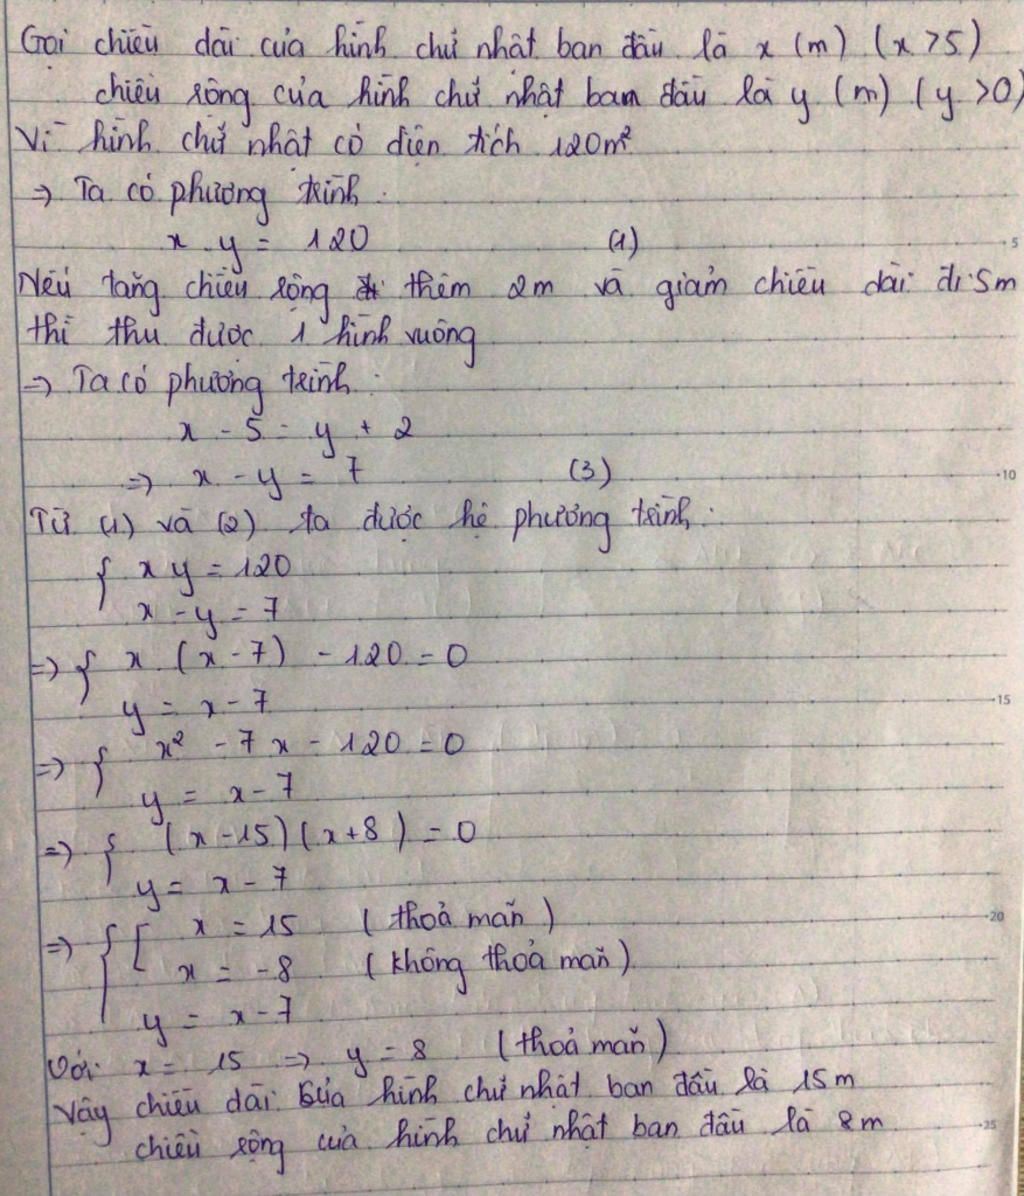 Gọi chiều dài của hình chữ nhật ban đầu là x (m) (x >5)
chiều rộng của hình chữ nhật ban đầu là y (m) (y >0)
Vì hình chữ nhật có diện tích 120m²
=> Ta có phương trình :
x . y = 120 (1)
Nếu tăng chiều rộng thêm 2m và giảm chiều dài đi 5m
thì thu được 1 hình vuông
=> Ta có phương trình :
x - 5 = y + 2
=> x - y = 7 (3)
Từ (1) và (2) ta được hệ phương trình :
{ xy = 120
x - y = 7
=> { x (x - 7) - 120 = 0
y = x - 7
=> { x² - 7x - 120 = 0
y = x - 7
=> { (x - 15)(x + 8) = 0
y = x - 7
=> { [ x = 15 (thoả mãn)
x = -8 (không thoả mãn)
y = x - 7
Với x = 15 => y = 8 (thoả mãn)
Vậy chiều dài của hình chữ nhật ban đầu là 15m
chiều rộng của hình chữ nhật ban đầu là 8m